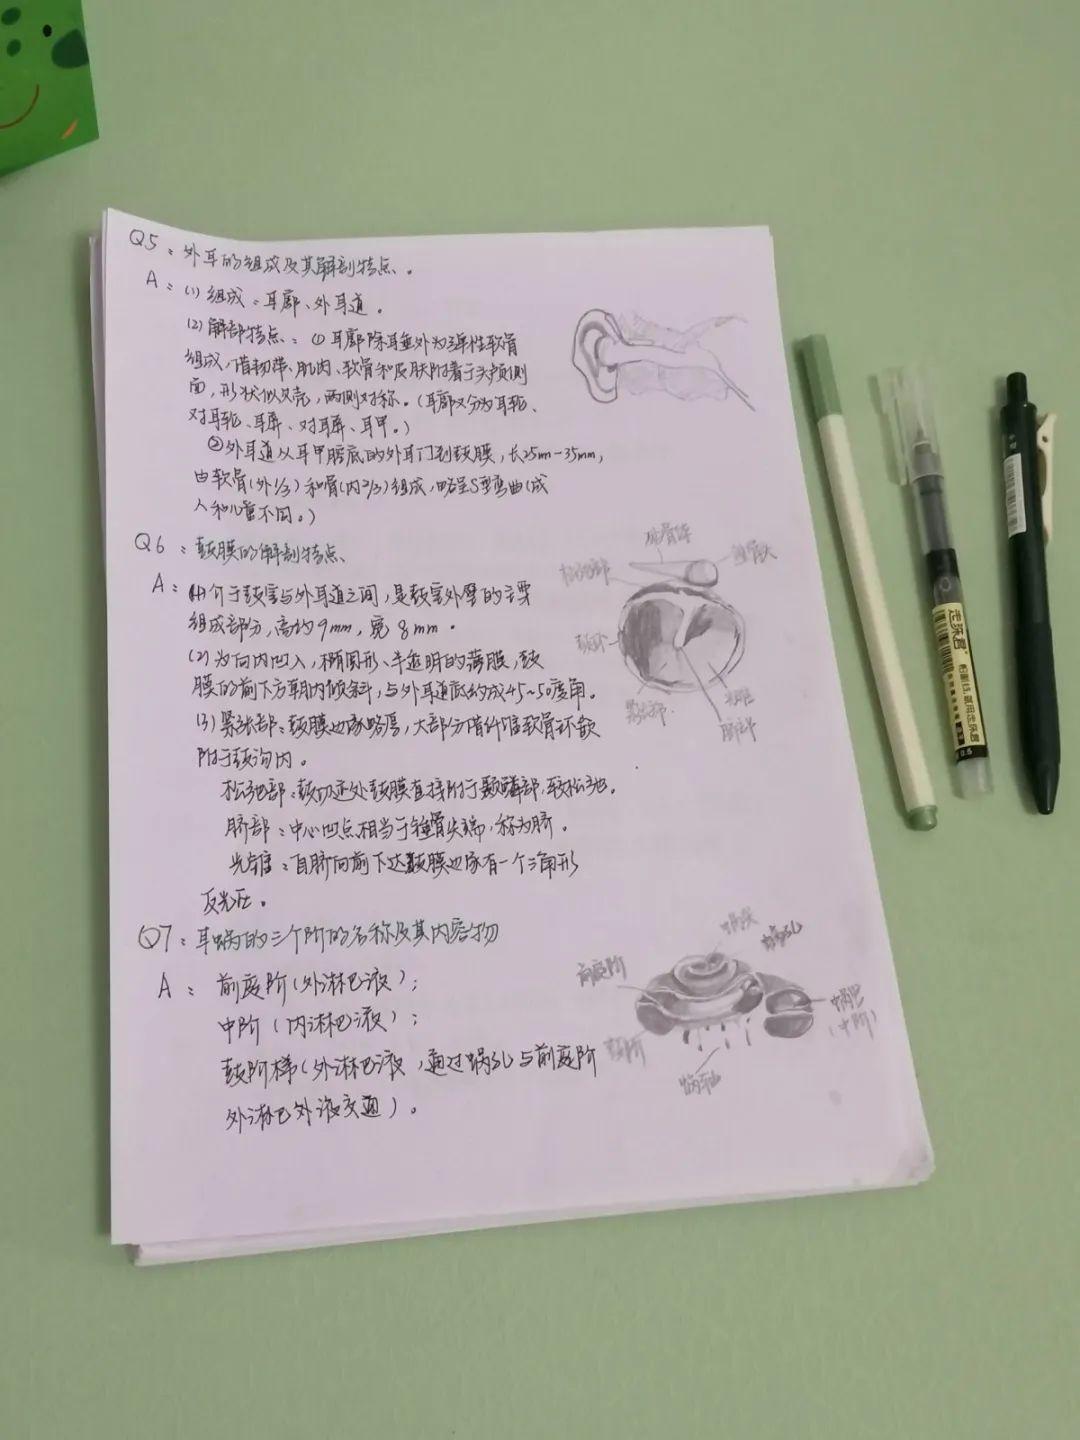 Q5：外耳的组成及其解剖特点。
A：(1) 组成：耳廓、外耳道。
(2) 解部特点：① 耳廓除耳垂外为弹性软骨
组成，借韧带、肌肉、软骨和皮肤附着于头颅侧
面，形状似贝壳，两侧对称。（耳廓又分为耳轮、
对耳轮、耳屏、对耳屏、耳甲。）
②外耳道从耳甲腔底的外耳门到鼓膜，长25mm-35mm，
由软骨(外1/3) 和骨(内2/3)组成，略呈S型弯曲(成
人和儿童不同。)
Q6：鼓膜的解剖特点、
A：(1)介于鼓室与外耳道之间，是鼓室外壁的主要
组成部分，高约9mm，宽8mm。
(2)为向内凹入，椭圆形、半透明的薄膜，鼓
膜的前下方朝内倾斜，与外耳道底约成45~50度角。
(3)紧张部：鼓膜边缘略厚，大部分借纤维软骨环嵌
附于鼓沟内。
松弛部：鼓切迹处鼓膜直接附于颞鳞部，较松弛。
脐部：中心凹点相当于锤骨尖端，称为脐。
光锥：自脐向前下达鼓膜边缘有一个三角形
反光区。
Q7：耳蜗的三个阶的名称及其内容物
A：前庭阶(外淋巴液)；
中阶(内淋巴液)；
鼓阶梯(外淋巴液，通过蜗孔与前庭阶
外淋巴外液交通)。
砧骨体
锤骨头
松弛部
鼓环
紧张部
光锥
脐部
蜗顶
蜗孔
前庭阶
蜗管
(中阶)
鼓阶
蜗轴
走珠君
0.5